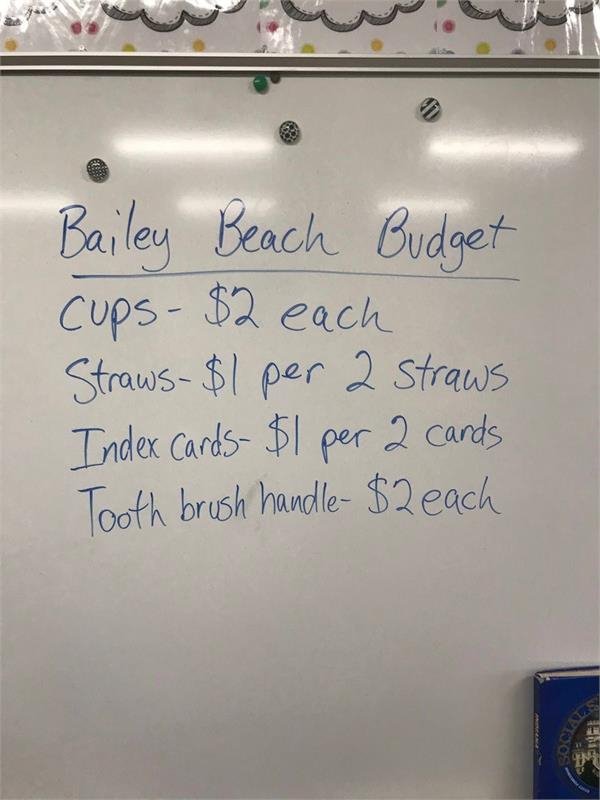 Bailey Beach Budget
Cups- $2 each
Straws- $1 per 2 straws
Index cards- $1 per 2 cards
Tooth brush handle- $2 each
SOCIAL S